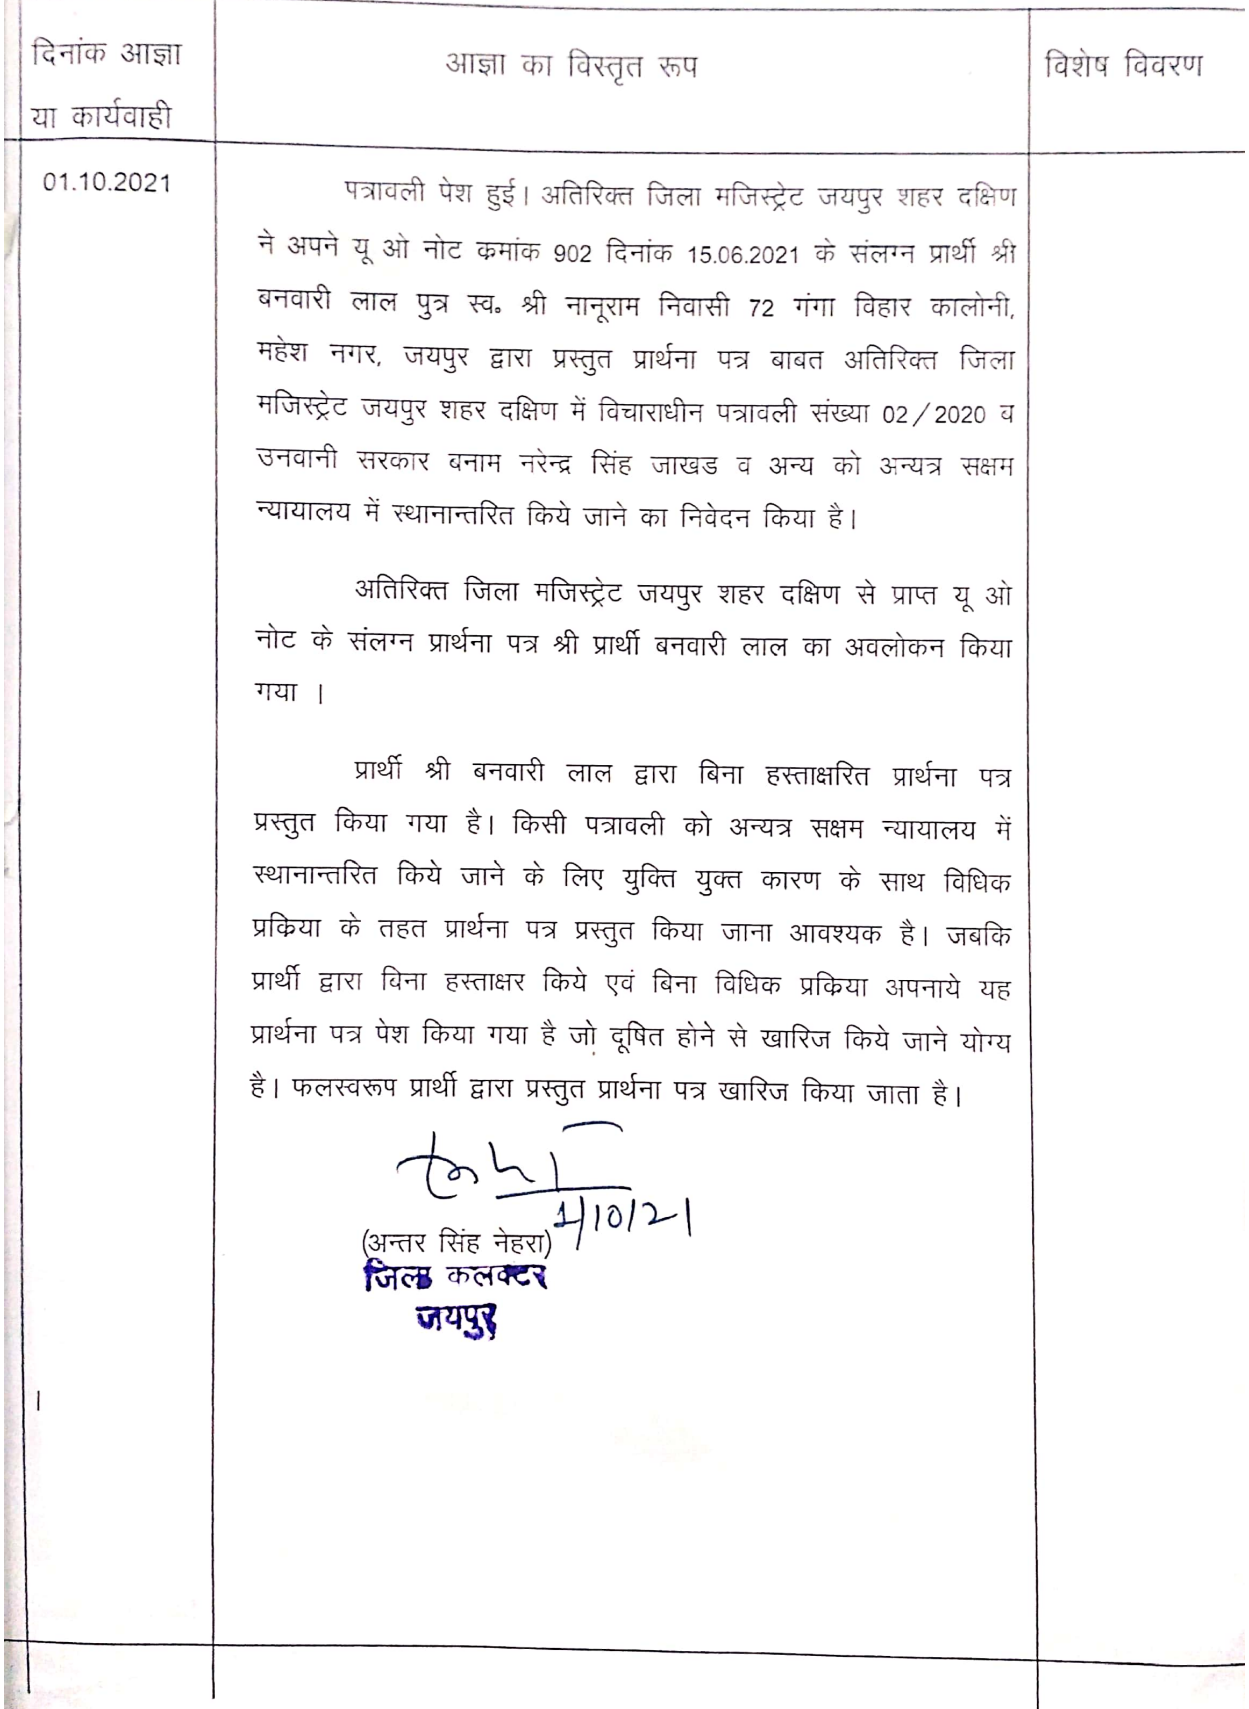 दिनांक आज्ञा
या कार्यवाही
आज्ञा का विस्तृत रूप
विशेष विवरण
01.10.2021
पत्रावली पेश हुई। अतिरिक्त जिला मजिस्ट्रेट जयपुर शहर दक्षिण
ने अपने यू ओ नोट कमांक 902 दिनांक 15.06.2021 के संलग्न प्रार्थी श्री
बनवारी लाल पुत्र स्व० श्री नानूराम निवासी 72 गंगा विहार कालोनी,
महेश नगर, जयपुर द्वारा प्रस्तुत प्रार्थना पत्र बाबत अतिरिक्त जिला
मजिस्ट्रेट जयपुर शहर दक्षिण में विचाराधीन पत्रावली संख्या 02/2020 व
उनवानी सरकार बनाम नरेन्द्र सिंह जाखड व अन्य को अन्यत्र सक्षम
न्यायालय में स्थानान्तरित किये जाने का निवेदन किया है।
अतिरिक्त जिला मजिस्ट्रेट जयपुर शहर दक्षिण से प्राप्त यू ओ
नोट के संलग्न प्रार्थना पत्र श्री प्रार्थी बनवारी लाल का अवलोकन किया
गया ।
प्रार्थी श्री बनवारी लाल द्वारा बिना हस्ताक्षरित प्रार्थना पत्र
प्रस्तुत किया गया है। किसी पत्रावली को अन्यत्र सक्षम न्यायालय में
स्थानान्तरित किये जाने के लिए युक्ति युक्त कारण के साथ विधिक
प्रकिया के तहत प्रार्थना पत्र प्रस्तुत किया जाना आवश्यक है। जबकि
प्रार्थी द्वारा विना हस्ताक्षर किये एवं बिना विधिक प्रकिया अपनाये यह
प्रार्थना पत्र पेश किया गया है जो दूषित होने से खारिज किये जाने योग्य
है। फलस्वरूप प्रार्थी द्वारा प्रस्तुत प्रार्थना पत्र खारिज किया जाता है।
1/10/21
(अन्तर सिंह नेहरा)
जिला कलक्टर
जयपुर